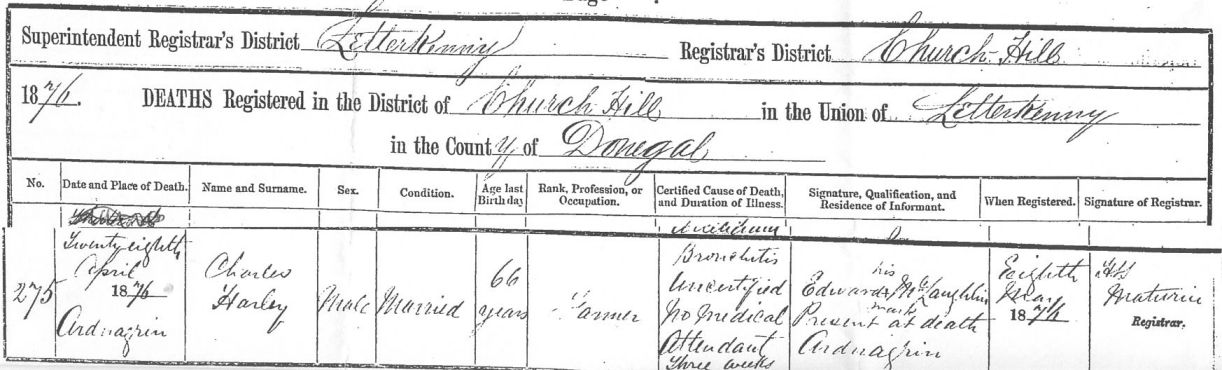 Superintendent Registrar's District Letterkenny Registrar's District Church Hill
1876. DEATHS Registered in the District of Church Hill in the Union of Letterkenny
in the County of Donegal
No. Date and Place of Death. Name and Surname. Sex. Condition. Age last Birthday Rank, Profession, or Occupation. Certified Cause of Death, and Duration of Illness. Signature, Qualification, and Residence of Informant. When Registered. Signature of Registrar.
275
Twenty eighth
April
1876
Ardnagrin
Charles
Harley
Male
Married
66
years
Farmer
Bronchitis
Uncertified
No Medical
Attendant
Three weeks
his
Edward McLaughlin
mark
Present at death
Ardnagrin
Eighth
May
1876
Maturin
Registrar.